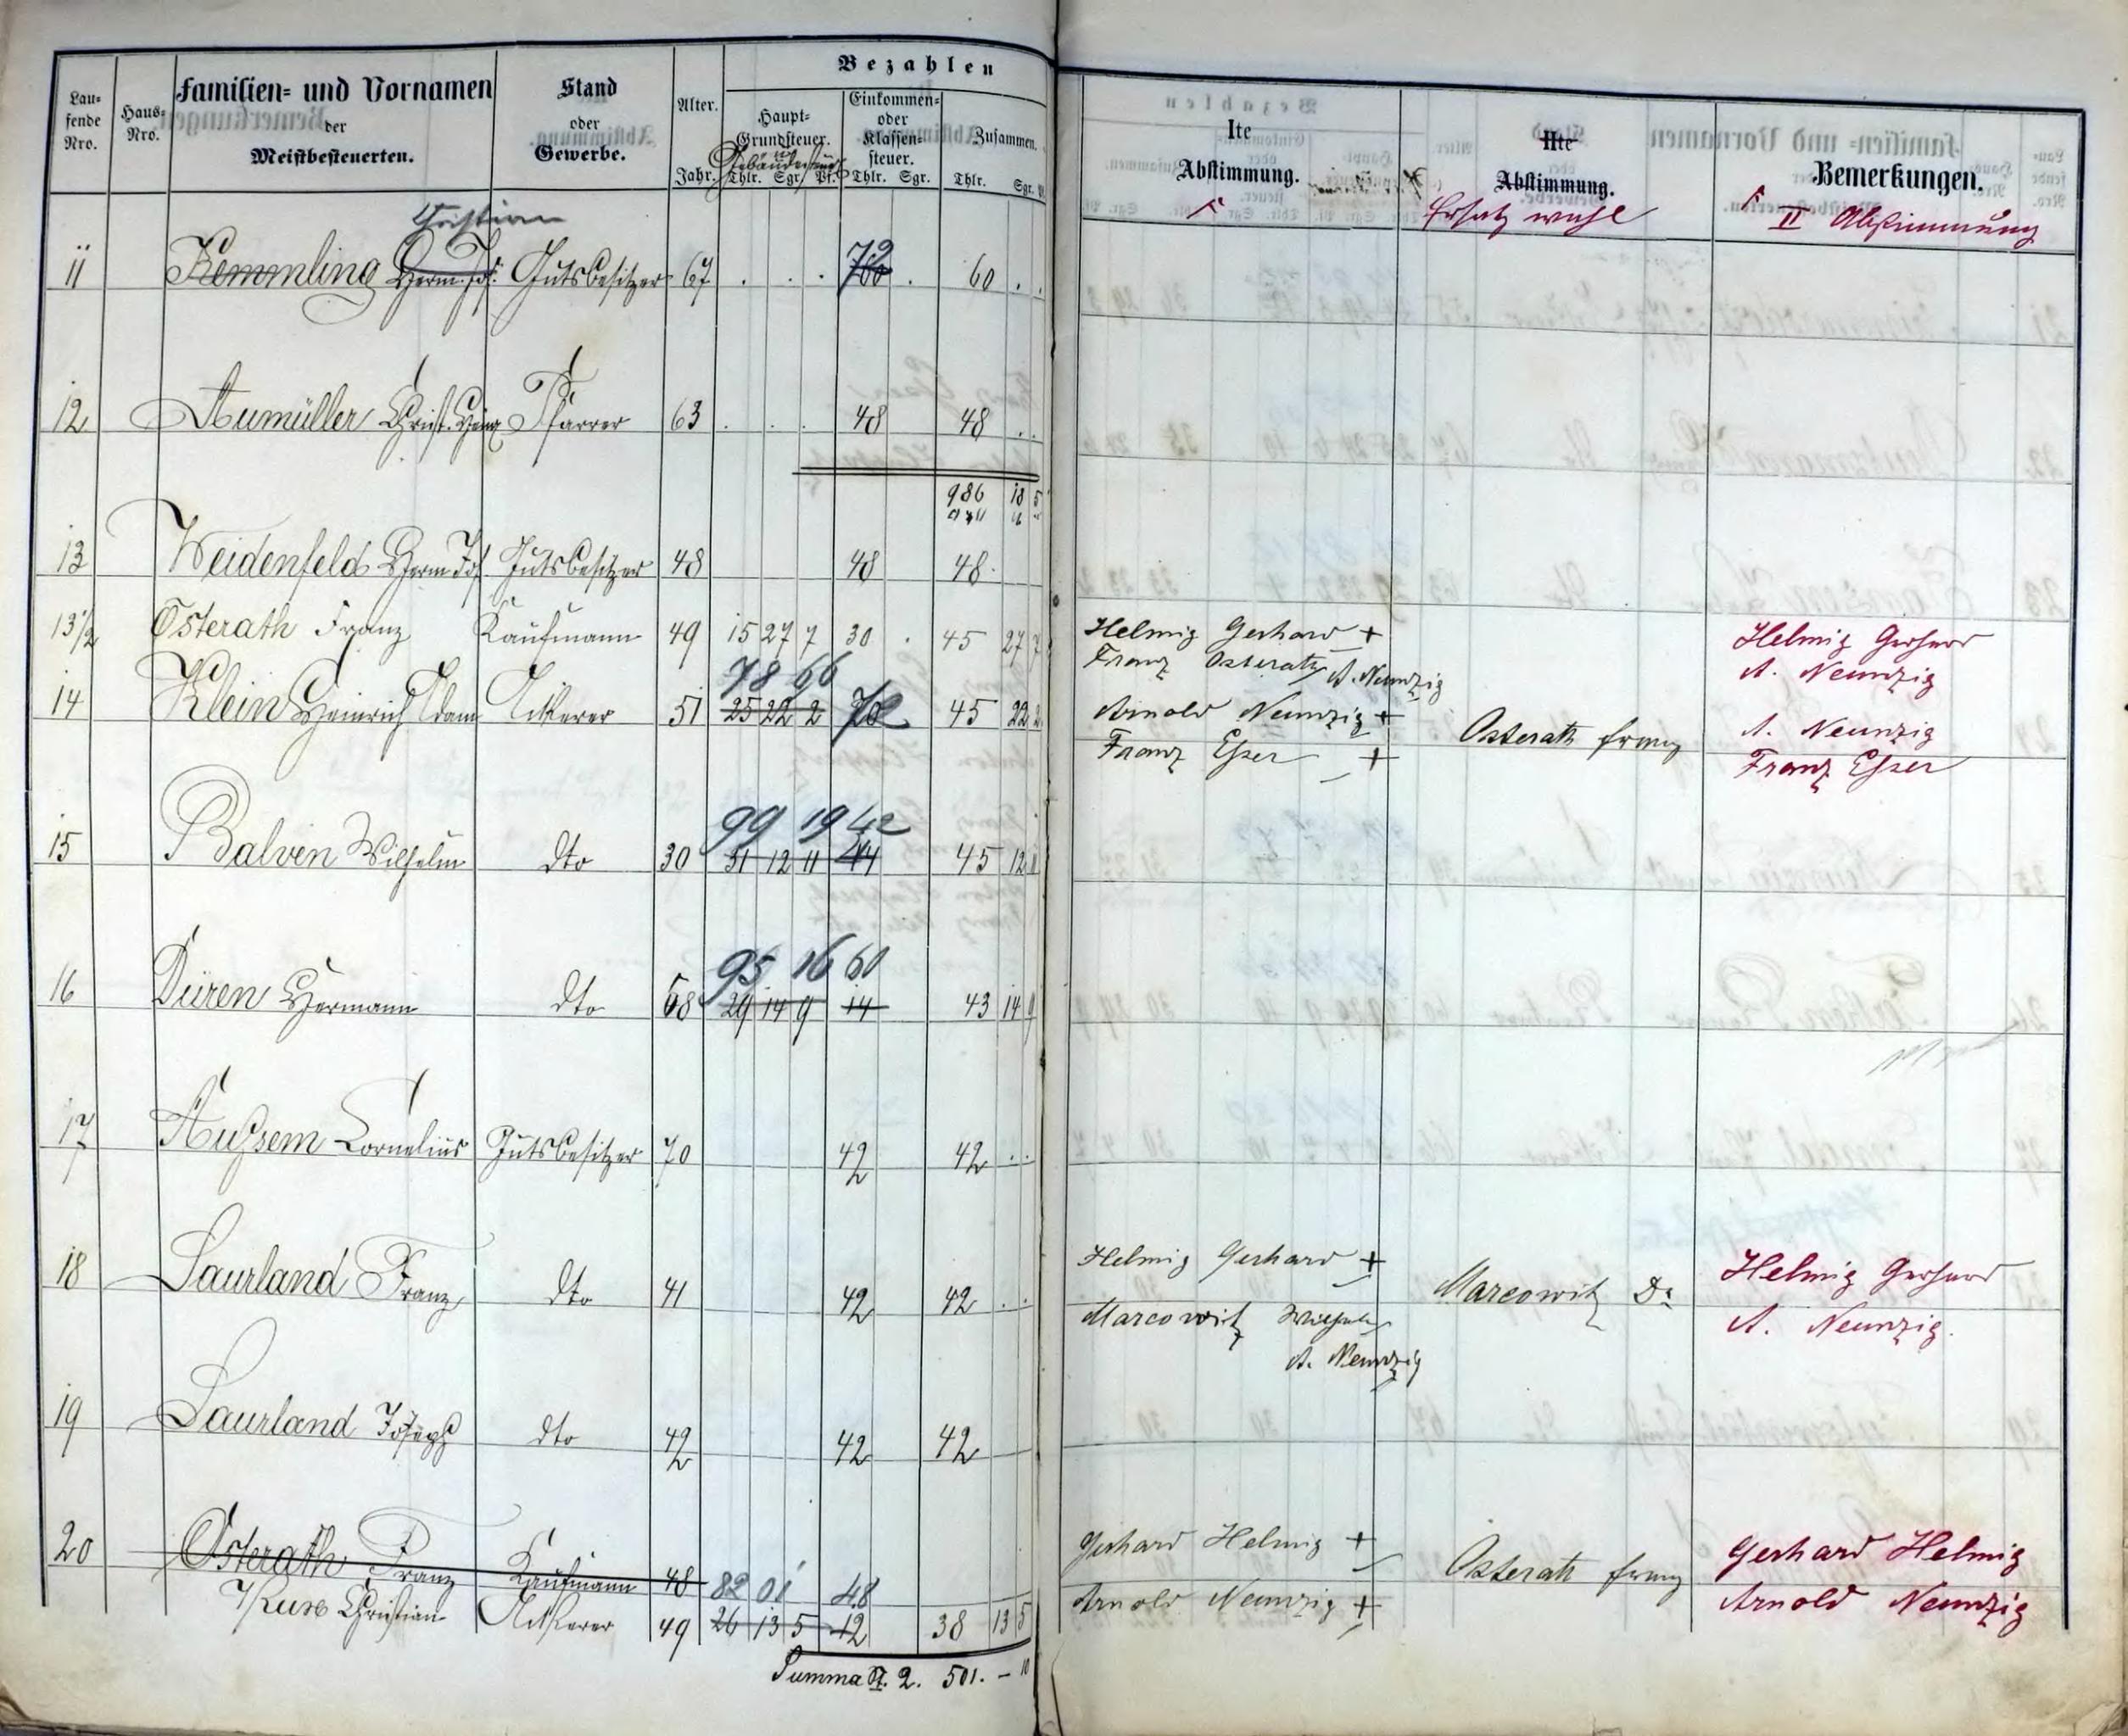 Bezahlen
Lau=
fende
Nro.
Haus=
Nro.
Familien= und Vornamen
der
Meistbesteuerten.
Stand
oder
Gewerbe.
Alter.
Jahr.
Haupt=
Grundsteuer.
Gebäudesteuer
Thlr. Sgr. Pf.
Einkommen=
oder
Klassen=
steuer.
Thlr. Sgr.
Zusammen.
Thlr. Sgr.
Ite
Abstimmung.
IIte
Abstimmung.
Ersatz wahl
Bemerkungen.
II Abstimmung
Christian
11 Kemmling Herm. Jos. Gutsbesitzer 67 72 60
12 Aumüller Christ. Pfarrer 63 48 48
986 18 5
13 Weidenfeld Herm Jos. Gutsbesitzer 48 48 48
13 1/2 Osterath Franz Kaufmann 49 15 27 7 30 45 27 7 Helmig Gerhard + Helmig Gerhard
Franz Osterath A. Neunzig A. Neunzig
78 66
14 Klein Heinrich Adam Ackerer 51 25 22 2 45 22 2 Arnold Neunzig + Osterath Franz A. Neunzig
Franz Esser + Franz Esser
99 19 42
15 Balven Wilhelm dto 30 31 12 11 14 45 12 11
95 16 60
16 Düren Hermann dto 68 29 14 9 14 43 14 9
17 Außem Cornelius Gutsbesitzer 70 42 42
18 Saurland Franz dto 41 42 42 Helmig Gerhard + Marcowitz Dr Helmig Gerhard
Marcowitz Wilhelm A. Neunzig
A. Neunzig
19 Saurland Joseph dto 42 42 42
20 Osterath Franz Kaufmann 48 Gerhard Helmig + Osterath Franz Gerhard Helmig
82 01 48
Kux Christian Ackerer 49 26 13 5 12 38 13 5 Arnold Neunzig + Arnold Neunzig
Summa St. 2. 501. – 10